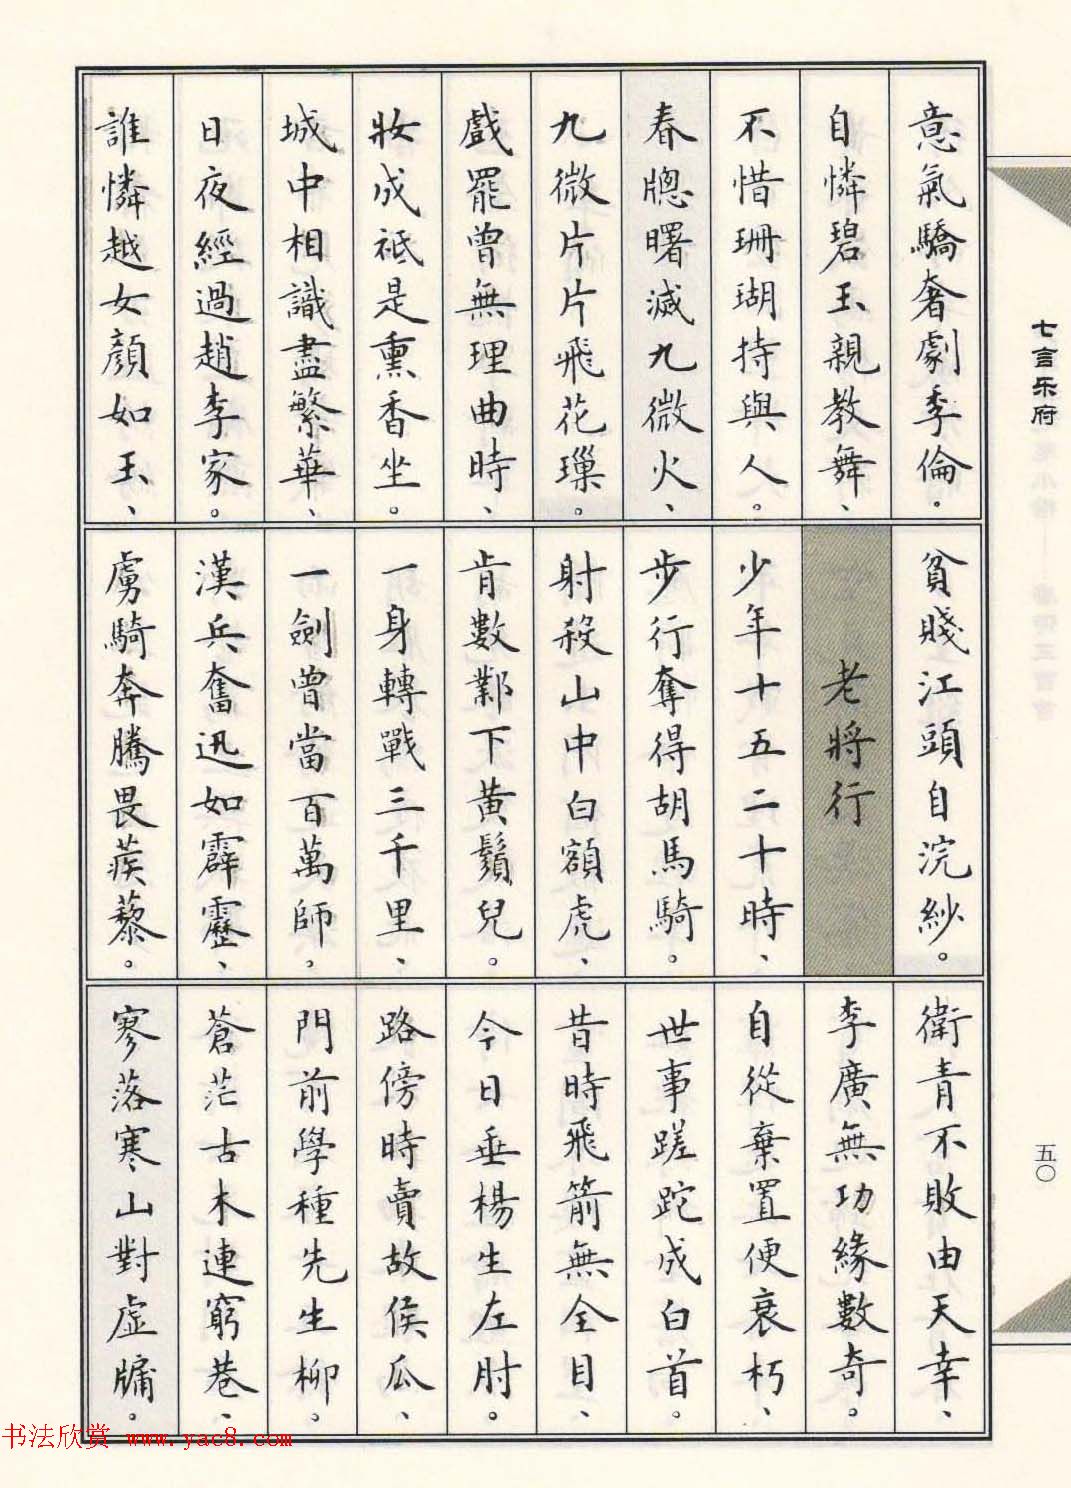 意氣驕奢劇季倫。
自憐碧玉親教舞、
不惜珊瑚持與人。
春牕曙滅九微火、
九微片片飛花璅。
戲罷曾無理曲時、
妝成祗是熏香坐。
城中相識盡繁華、
日夜經過趙李家。
誰憐越女顏如玉、
貧賤江頭自浣紗。
老將行
少年十五二十時、
步行奪得胡馬騎。
射殺山中白額虎、
肯數鄴下黃鬚兒。
一身轉戰三千里、
一劍曾當百萬師。
漢兵奮迅如霹靂、
虜騎奔騰畏蒺藜。
衛青不敗由天幸、
李廣無功緣數奇。
自從棄置便衰朽、
世事蹉跎成白首。
昔時飛箭無全目、
今日垂楊生左肘。
路傍時賣故侯瓜、
門前學種先生柳。
蒼茫古木連窮巷、
寥落寒山對虛牖。
七言乐府
五〇
书法欣赏 www.yac8.com